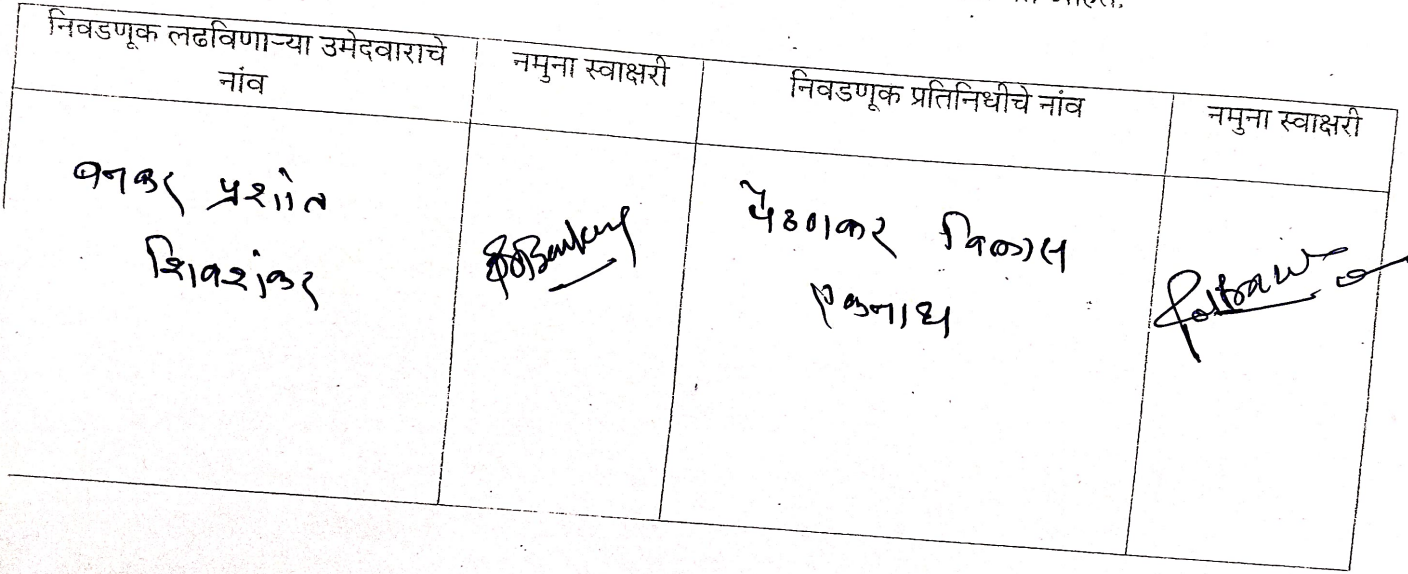 निवडणूक लढविणाऱ्या उमेदवाराचे नांव
नमुना स्वाक्षरी
निवडणूक प्रतिनिधीचे नांव
नमुना स्वाक्षरी
बनकर प्रशांत
शिवशंकर
पैठणकर विकास
एकनाथ